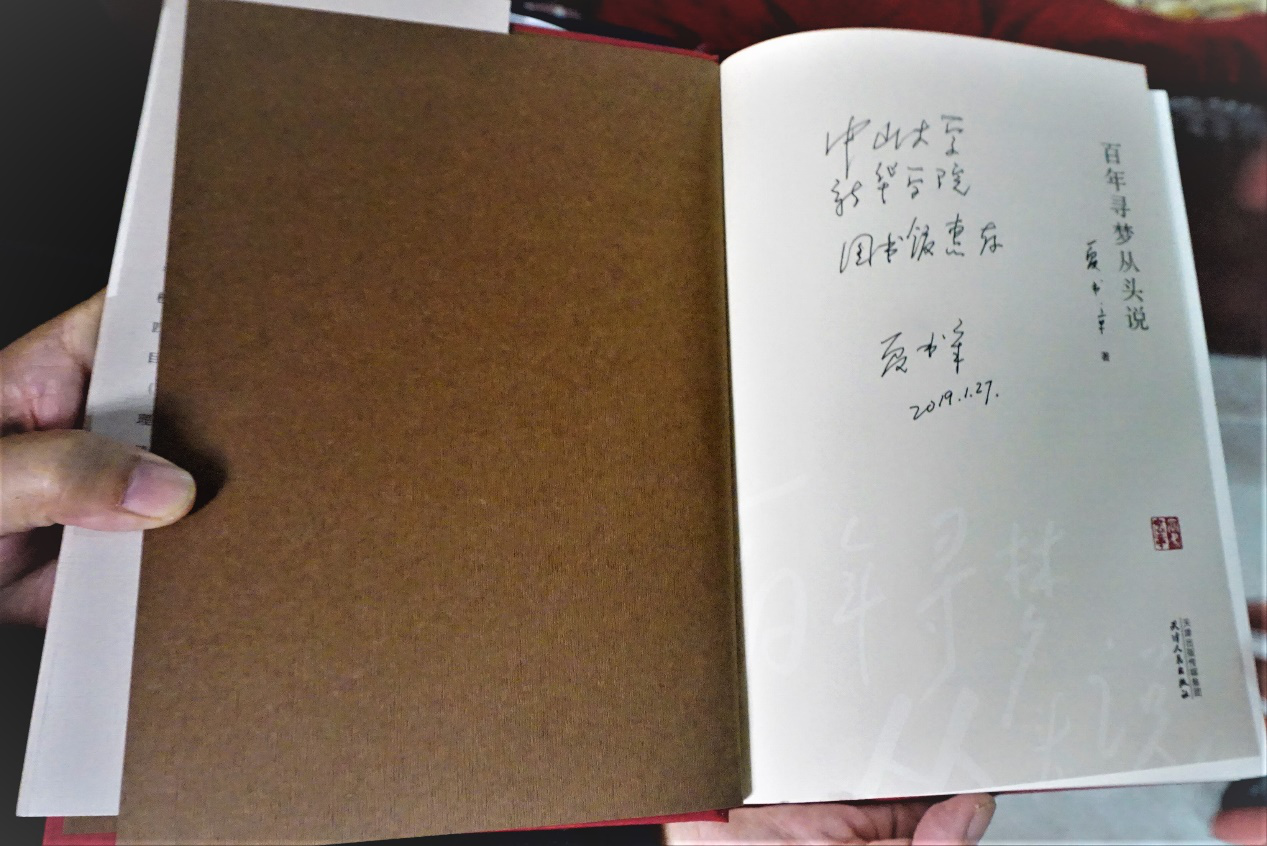 中山大学
新华学院
图书馆惠存
夏书章
2019.1.27.
百年寻梦从头说
夏书章
著
天津出版传媒集团
天津人民出版社
百年寻梦
从头说
目
理